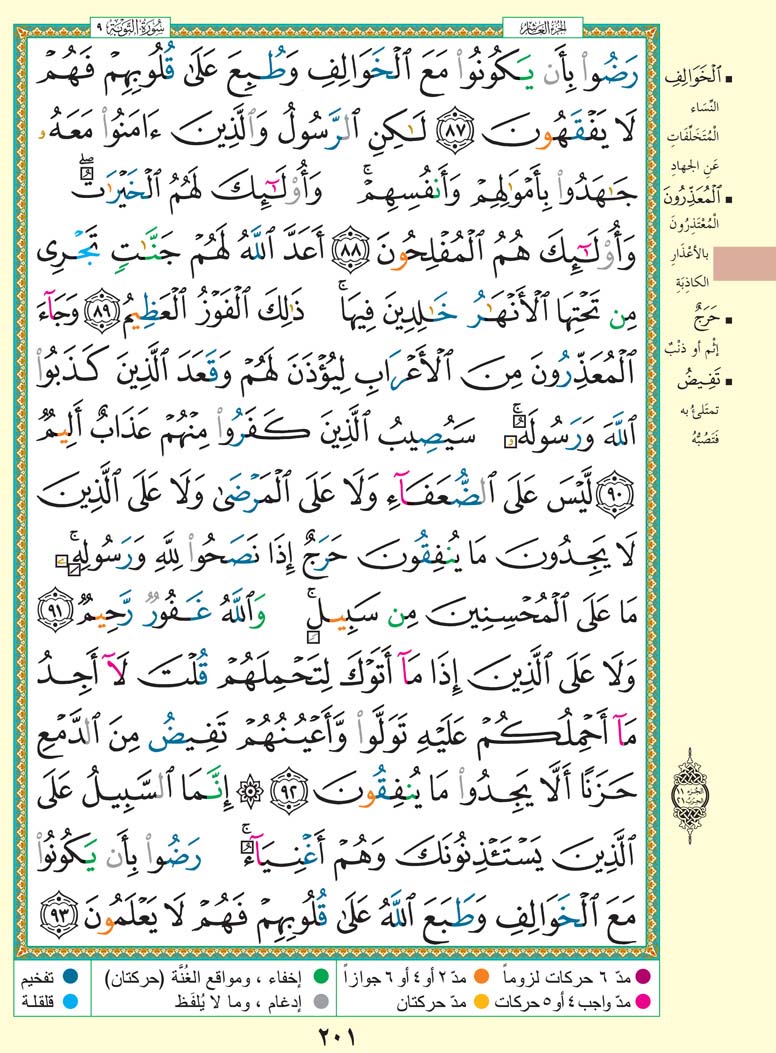 سُورَةُ التَّوْبَةِ ٩
الجزء العاشر
رَضُوا۟ بِأَن يَكُونُوا۟ مَعَ ٱلْخَوَالِفِ وَطُبِعَ عَلَىٰ قُلُوبِهِمْ فَهُمْ
لَا يَفْقَهُونَ ﴿٨٧﴾ لَـٰكِنِ ٱلرَّسُولُ وَٱلَّذِينَ ءَامَنُوا۟ مَعَهُۥ
جَـٰهَدُوا۟ بِأَمْوَٰلِهِمْ وَأَنفُسِهِمْ ۚ وَأُو۟لَـٰٓئِكَ لَهُمُ ٱلْخَيْرَٰتُ ۖ
وَأُو۟لَـٰٓئِكَ هُمُ ٱلْمُفْلِحُونَ ﴿٨٨﴾ أَعَدَّ ٱللَّهُ لَهُمْ جَنَّـٰتٍ تَجْرِى
مِن تَحْتِهَا ٱلْأَنْهَـٰرُ خَـٰلِدِينَ فِيهَا ۚ ذَٰلِكَ ٱلْفَوْزُ ٱلْعَظِيمُ ﴿٨٩﴾ وَجَآءَ
ٱلْمُعَذِّرُونَ مِنَ ٱلْأَعْرَابِ لِيُؤْذَنَ لَهُمْ وَقَعَدَ ٱلَّذِينَ كَذَبُوا۟
ٱللَّهَ وَرَسُولَهُۥ ۚ سَيُصِيبُ ٱلَّذِينَ كَفَرُوا۟ مِنْهُمْ عَذَابٌ أَلِيمٌ
﴿٩٠﴾ لَّيْسَ عَلَى ٱلضُّعَفَآءِ وَلَا عَلَى ٱلْمَرْضَىٰ وَلَا عَلَى ٱلَّذِينَ
لَا يَجِدُونَ مَا يُنفِقُونَ حَرَجٌ إِذَا نَصَحُوا۟ لِلَّهِ وَرَسُولِهِۦ ۚ
مَا عَلَى ٱلْمُحْسِنِينَ مِن سَبِيلٍ ۚ وَٱللَّهُ غَفُورٌ رَّحِيمٌ ﴿٩١﴾
وَلَا عَلَى ٱلَّذِينَ إِذَا مَآ أَتَوْكَ لِتَحْمِلَهُمْ قُلْتَ لَآ أَجِدُ
مَآ أَحْمِلُكُمْ عَلَيْهِ تَوَلَّوا۟ وَّأَعْيُنُهُمْ تَفِيضُ مِنَ ٱلدَّمْعِ
حَزَنًا أَلَّا يَجِدُوا۟ مَا يُنفِقُونَ ﴿٩٢﴾ ۞ إِنَّمَا ٱلسَّبِيلُ عَلَى
ٱلَّذِينَ يَسْتَـْٔذِنُونَكَ وَهُمْ أَغْنِيَآءُ ۚ رَضُوا۟ بِأَن يَكُونُوا۟
مَعَ ٱلْخَوَالِفِ وَطَبَعَ ٱللَّهُ عَلَىٰ قُلُوبِهِمْ فَهُمْ لَا يَعْلَمُونَ ﴿٩٣﴾
▪ ٱلْخَوَالِفِ
النِّسَاء
الْمُتَخَلِّفَاتِ
عَنِ الجهادِ
▪ ٱلْمُعَذِّرُونَ
الْمُعْتَذِرُونَ
بالأعْذَارِ
الكاذِبَةِ
▪ حَرَجٌ
إثم أو ذنْبٌ
▪ تَفِيضُ
تمتلئُ به
فَتَصُبُّهُ
الجزء ١١
الحزب ٢١
مدّ ٦ حركات لزوماً
مدّ ٢ أو ٤ أو ٦ جوازاً
إخفاء ، ومواقع الغُنَّة (حركتان)
تفخيم
مدّ واجب ٤ أو ٥ حركات
مدّ حركتان
إدغام ، وما لا يُلفَظ
قلقلة
٢٠١